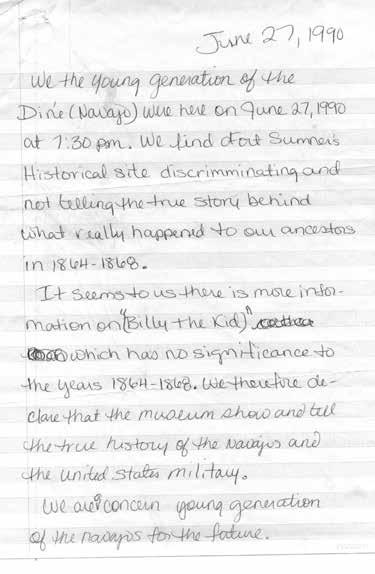 June 27, 1990
We the young generation of the
Din'e (Navajo) were here on June 27, 1990
at 7:30 pm. We find Fort Sumner's
Historical site discrimminating and
not telling the true story behind
what really happened to our ancestors
in 1864-1868.
It seems to us there is more infor-
mation on "(Billy the Kid)"
which has no significance to
the years 1864-1868. We therefore de-
clare that the museum show and tell
the true history of the Navajos and
the United States military.
We are concern young generation
of the navajos for the future.